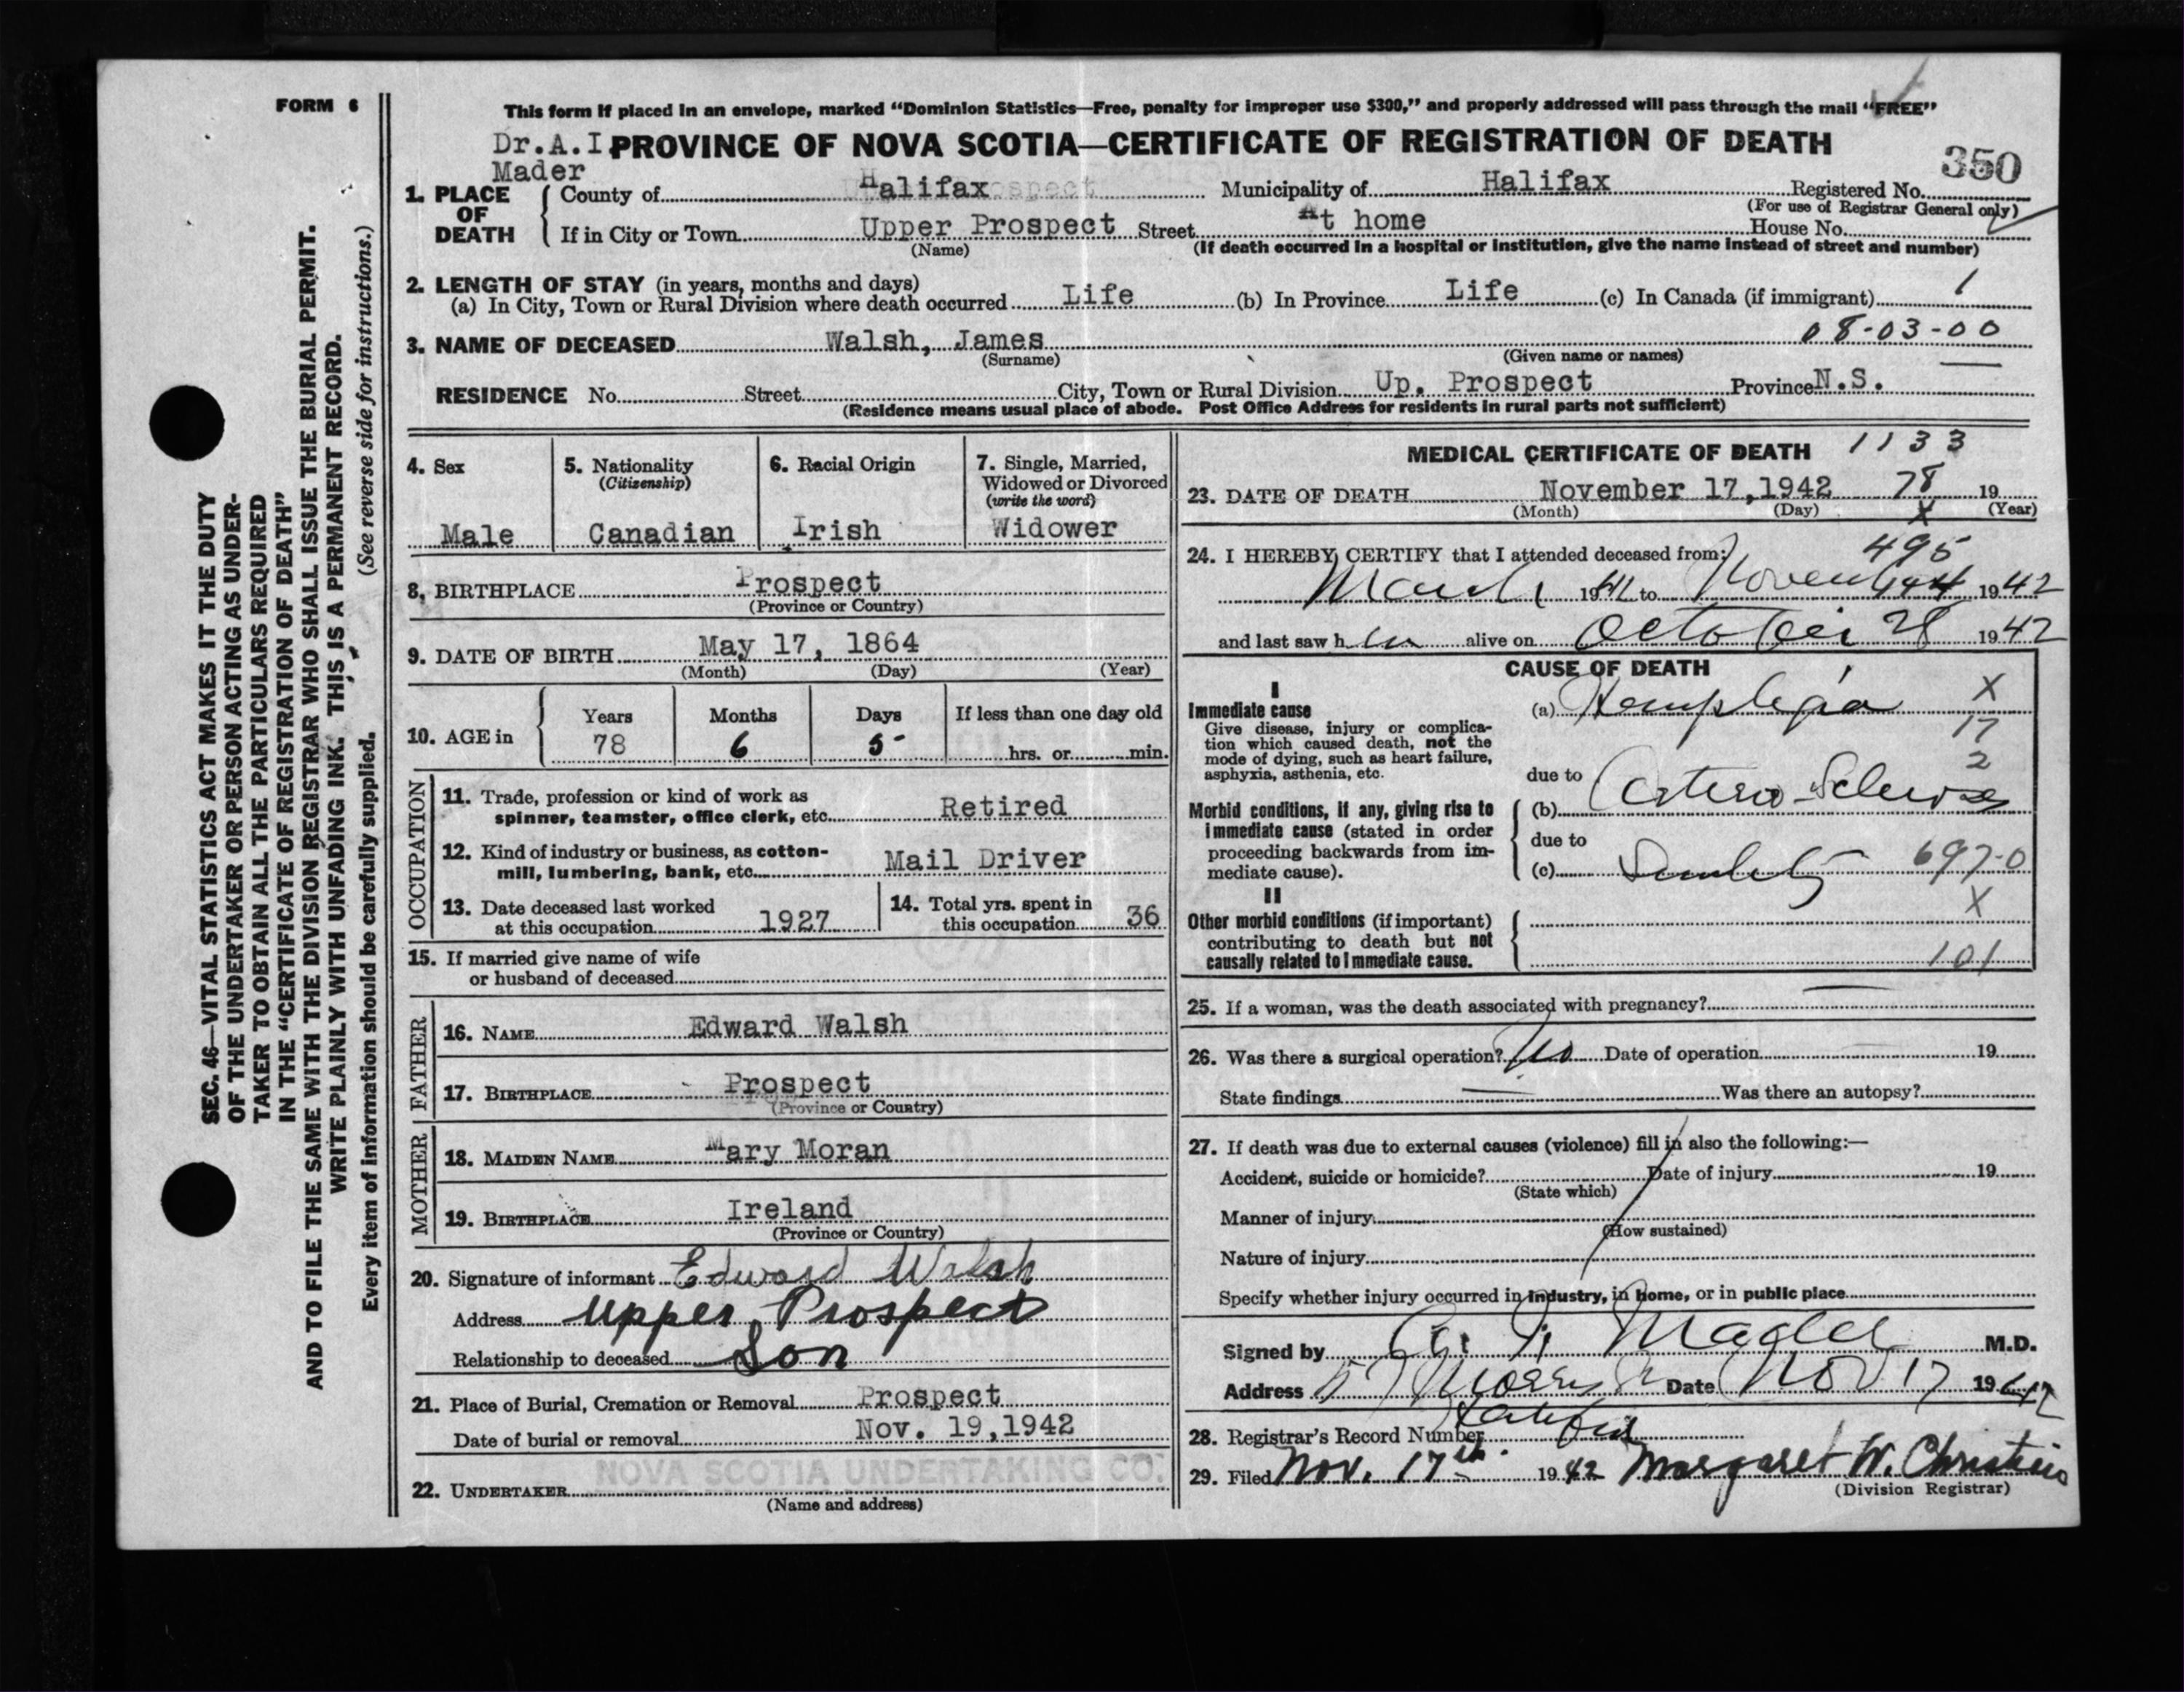 FORM 6
This form if placed in an envelope, marked “Dominion Statistics—Free, penalty for improper use $300,” and properly addressed will pass through the mail “FREE”
Dr.A.I. PROVINCE OF NOVA SCOTIA—CERTIFICATE OF REGISTRATION OF DEATH
Mader
350
1. PLACE OF DEATH
County of Halifax Municipality of Halifax Registered No.
(For use of Registrar General only)
If in City or Town Upper Prospect Street At home House No.
(Name) (If death occurred in a hospital or institution, give the name instead of street and number)
2. LENGTH OF STAY (in years, months and days)
(a) In City, Town or Rural Division where death occurred Life (b) In Province Life (c) In Canada (if immigrant) 1
08-03-00
3. NAME OF DECEASED Walsh, James
(Surname) (Given name or names)
RESIDENCE No. Street City, Town or Rural Division Up. Prospect Province N.S.
(Residence means usual place of abode. Post Office Address for residents in rural parts not sufficient)
4. Sex
Male
5. Nationality
(Citizenship)
Canadian
6. Racial Origin
Irish
7. Single, Married,
Widowed or Divorced
(write the word)
Widower
8. BIRTHPLACE Prospect
(Province or Country)
9. DATE OF BIRTH May 17, 1864
(Month) (Day) (Year)
10. AGE in
Years Months Days If less than one day old
78 6 5 hrs. or min.
OCCUPATION
11. Trade, profession or kind of work as
spinner, teamster, office clerk, etc. Retired
12. Kind of industry or business, as cotton-
mill, lumbering, bank, etc. Mail Driver
13. Date deceased last worked
at this occupation 1927
14. Total yrs. spent in
this occupation 36
15. If married give name of wife
or husband of deceased
FATHER
16. NAME Edward Walsh
17. BIRTHPLACE Prospect
(Province or Country)
MOTHER
18. MAIDEN NAME Mary Moran
19. BIRTHPLACE Ireland
(Province or Country)
20. Signature of informant Edward Walsh
Address Upper Prospect
Relationship to deceased Son
21. Place of Burial, Cremation or Removal Prospect
Date of burial or removal Nov. 19,1942
NOVA SCOTIA UNDERTAKING CO.
22. UNDERTAKER
(Name and address)
MEDICAL CERTIFICATE OF DEATH 1133
23. DATE OF DEATH November 17,1942 78 19
(Month) (Day) X (Year)
24. I HEREBY CERTIFY that I attended deceased from: 495
March 1941 to November 1942
and last saw him alive on October 28 1942
CAUSE OF DEATH
I
Immediate cause
Give disease, injury or complica-
tion which caused death, not the
mode of dying, such as heart failure,
asphyxia, asthenia, etc.
(a) Hemiplegia X
17
2
due to
Morbid conditions, if any, giving rise to
immediate cause (stated in order
proceeding backwards from im-
mediate cause).
(b) Arterio-Sclerosis
due to
(c) Senility 697-0
X
II
Other morbid conditions (if important)
contributing to death but not
causally related to immediate cause.
101
25. If a woman, was the death associated with pregnancy?
26. Was there a surgical operation? No Date of operation 19
State findings Was there an autopsy?
27. If death was due to external causes (violence) fill in also the following:—
Accident, suicide or homicide? Date of injury 19
(State which)
Manner of injury
(How sustained)
Nature of injury
Specify whether injury occurred in industry, in home, or in public place
Signed by A. I. Mader M.D.
Address 57 Morris St Date Nov 17 1942
Halifax
28. Registrar's Record Number
29. Filed Nov. 17th. 1942 Margaret W. Christie
(Division Registrar)
SEC. 46—VITAL STATISTICS ACT MAKES IT THE DUTY
OF THE UNDERTAKER OR PERSON ACTING AS UNDER-
TAKER TO OBTAIN ALL THE PARTICULARS REQUIRED
IN THE “CERTIFICATE OF REGISTRATION OF DEATH”
AND TO FILE THE SAME WITH THE DIVISION REGISTRAR WHO SHALL ISSUE THE BURIAL PERMIT.
WRITE PLAINLY WITH UNFADING INK. THIS IS A PERMANENT RECORD.
Every item of information should be carefully supplied. (See reverse side for instructions.)